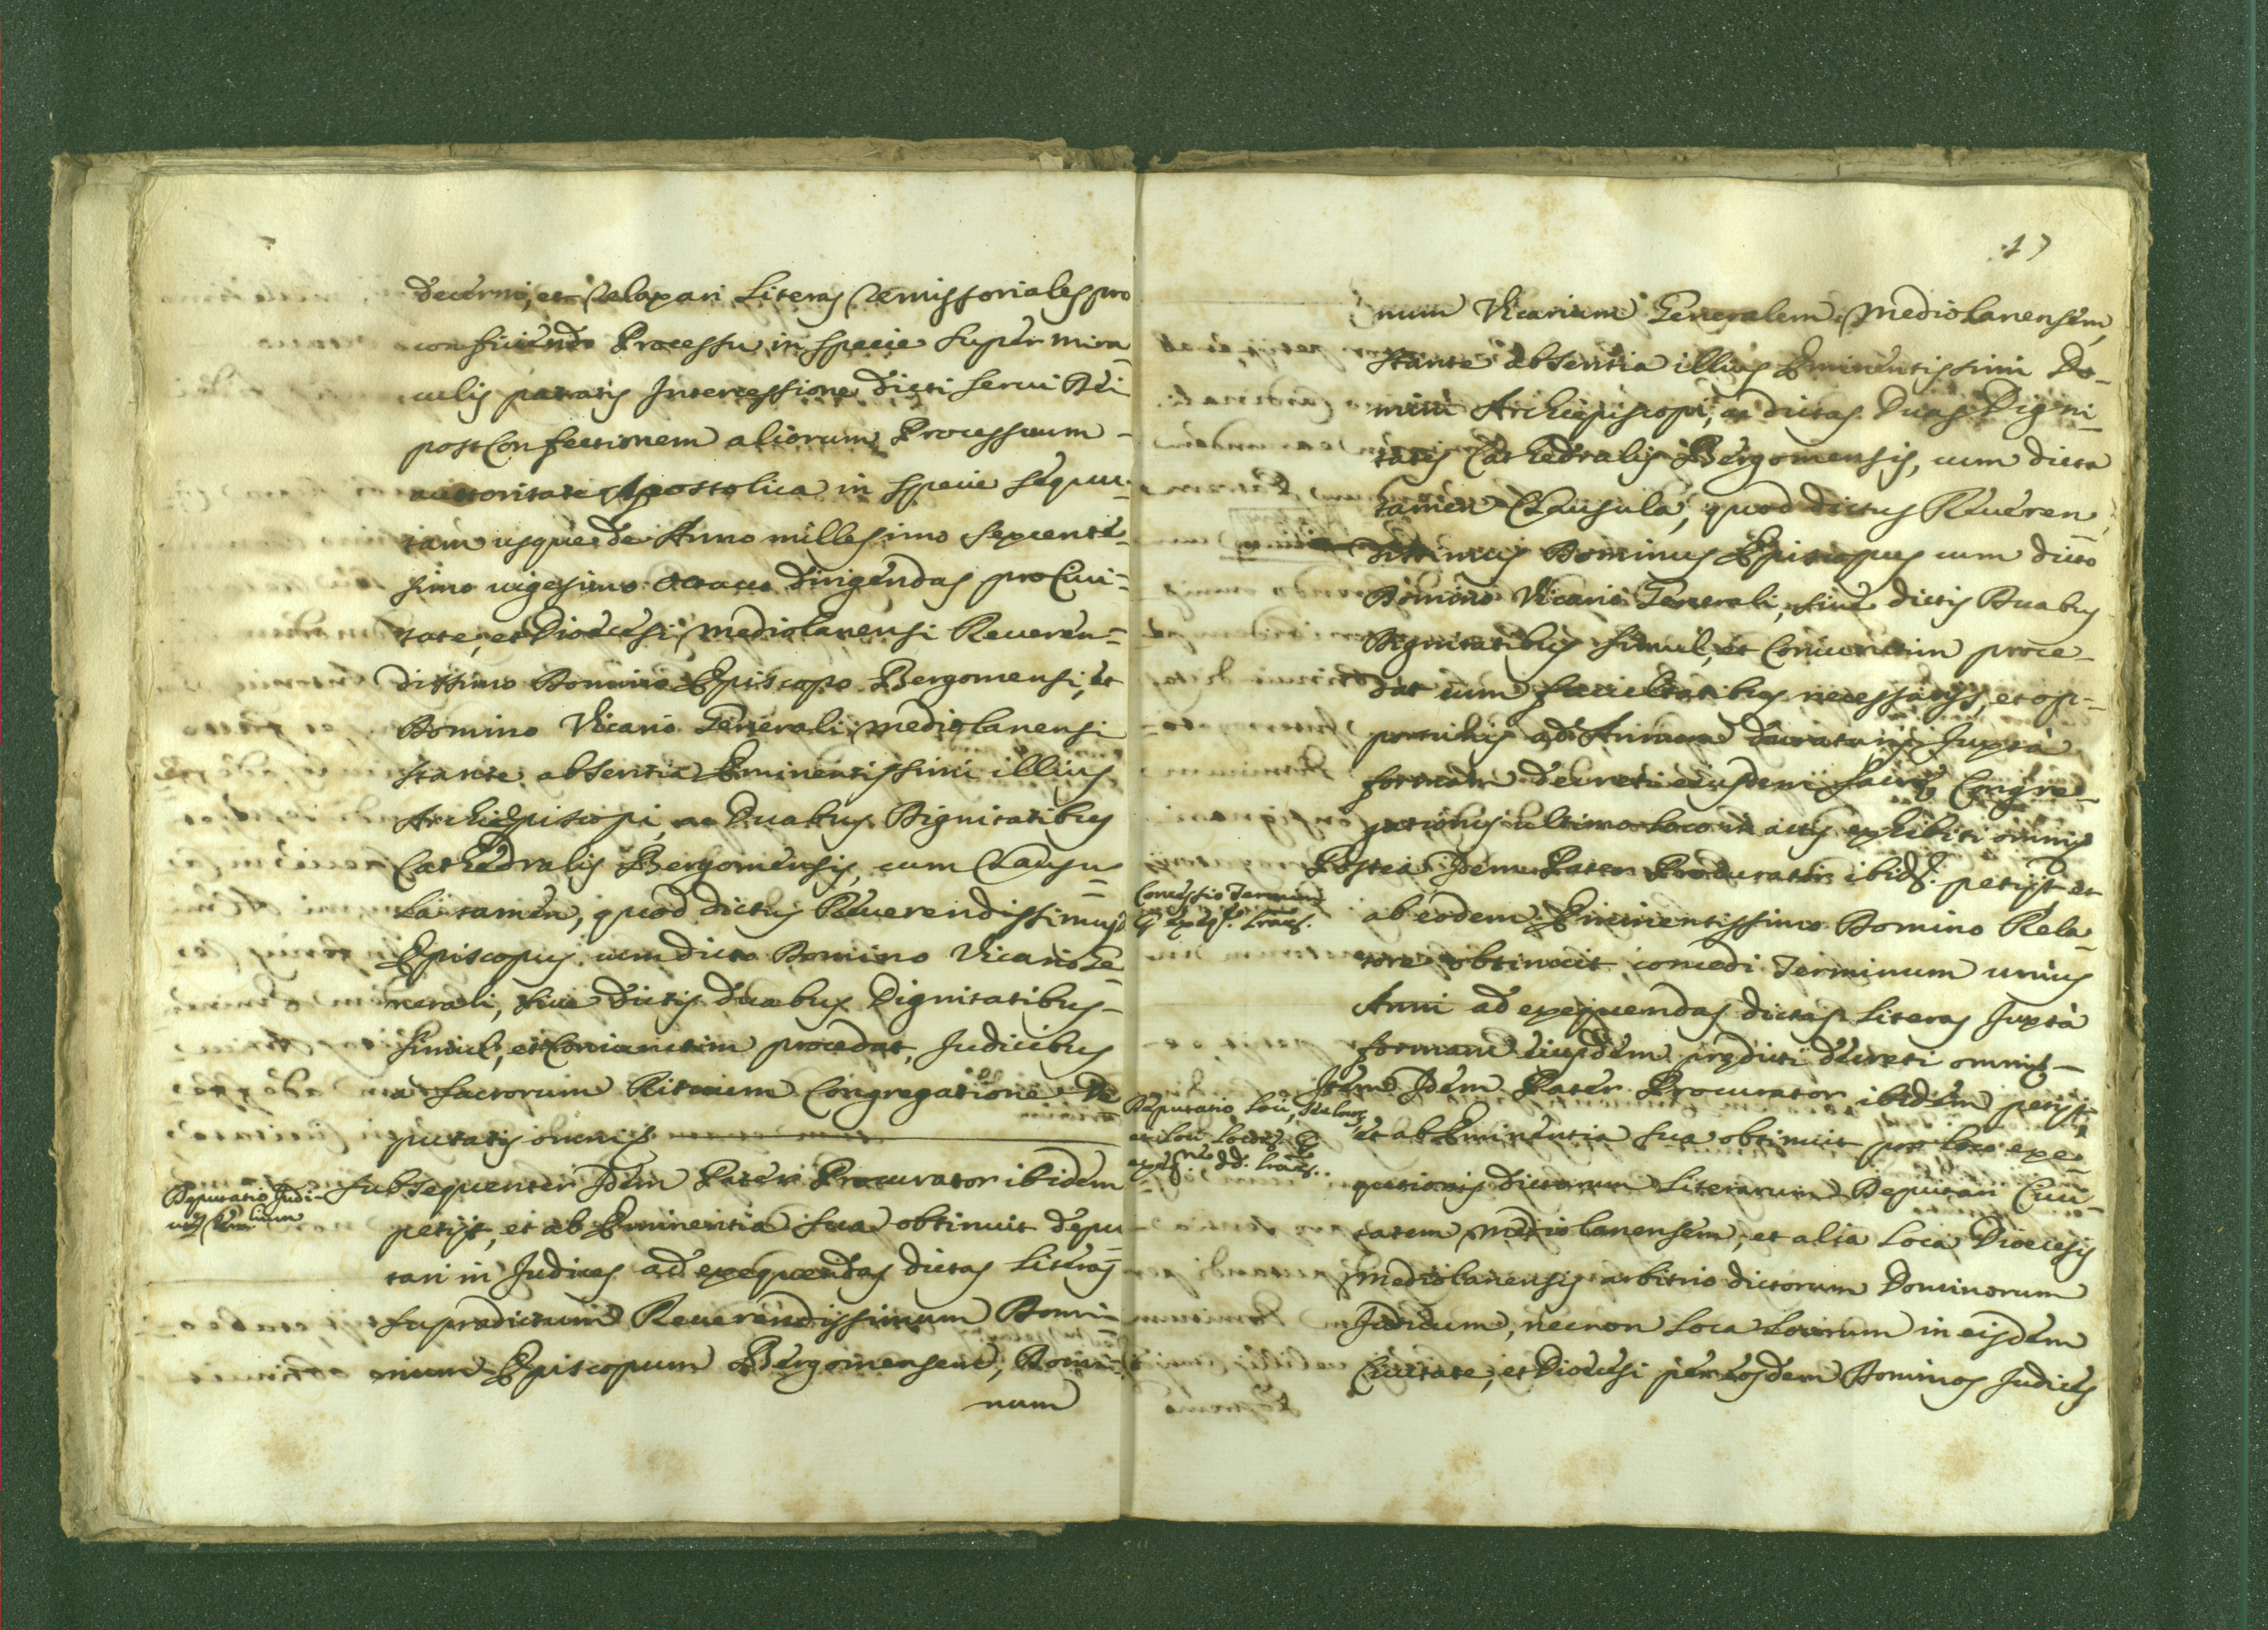 decerni, et relaxari Literas remissoriales pro
conficiendo Processu in specie super mira
culis patratis Intercessione dicti Servi Dei
post Confectionem aliorum Processuum -
auctoritate Apostolica in specie sequu-
tam usque de Anno millesimo sexcente-
simo vigesimo octavo dirigendas pro Civi=
tate, et Dioecesi Mediolanensi Reveren=
dissimo Domino Episcopo Bergomensi, et
Domino Vicario Generali Mediolanensi
stante absentia Eminentissimi illius
Archiepiscopi, ac Duabus Dignitatibus
Cathedralis Bergomensis, cum Clausu=
la tamen, quod dictus Reverendissimus
Episcopus cum dicto Domino Vicario Ge=
nerali, sive dictis duabus Dignitatibus -
simul, et Coniunctim procedat, Judicibus
a sacrorum Rituum Congregatione De
putatis omnis
Deputatio Judi-
cum
Subsequenter Idem Pater Procurator ibidem
petijt, et ab Eminentia sua obtinuit depu=
tari in Judices ad exequendas dictas Literas
supradictum Reverendissimum Domi=
num Episcopum Bergomensem, Domi=
num
17
num Vicarium Generalem Mediolanensem,
stante absentia illius Eminentissimi Do-
mini Archiepiscopi, ac dictas Duas Digni=
tates Cathedralis Bergomensis, cum dicta
tamen Clausula, quod dictus Reveren
dissimus Dominus Episcopus cum dicto
Domino Vicario Generali, sive dictis Duabus
Dignitatibus simul, et Coniunctim proce-
dat cum facultatibus necessarijs, et op-
portunis ad Annum duraturis Juxta
formam decreti eiusdem Sacrae Congre-
gationis ultimo loco in actis exhibiti omnis
Concessio Termini
Postea Idem Pater Procurator ibid. petijt, et
ab eodem Eminentissimo Domino Rela-
tore obtinuit concedi Terminum unius
Anni ad exequendas dictas Literas Juxta
formam eiusdem praedicti decreti omnis -
Deputatio Loci,
et Loci
Item Idem Pater Procurator ibidem petijt,
et ab Eminentia sua obtinuit pro loco exe=
qutionis dictarum Literarum Deputari Civi=
tatem Mediolanensem, et alia Loca Dioecesis
Mediolanensis arbitrio dictorum Dominorum
Judicum, necnon Loca Locorum in eisdem
Civitate, et Dioecesi per eosdem Dominos Judices